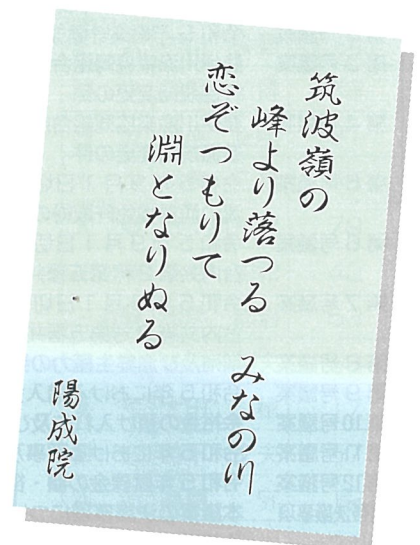 筑波嶺の
峰より落つる みなの川
恋ぞつもりて
淵となりぬる
陽成院